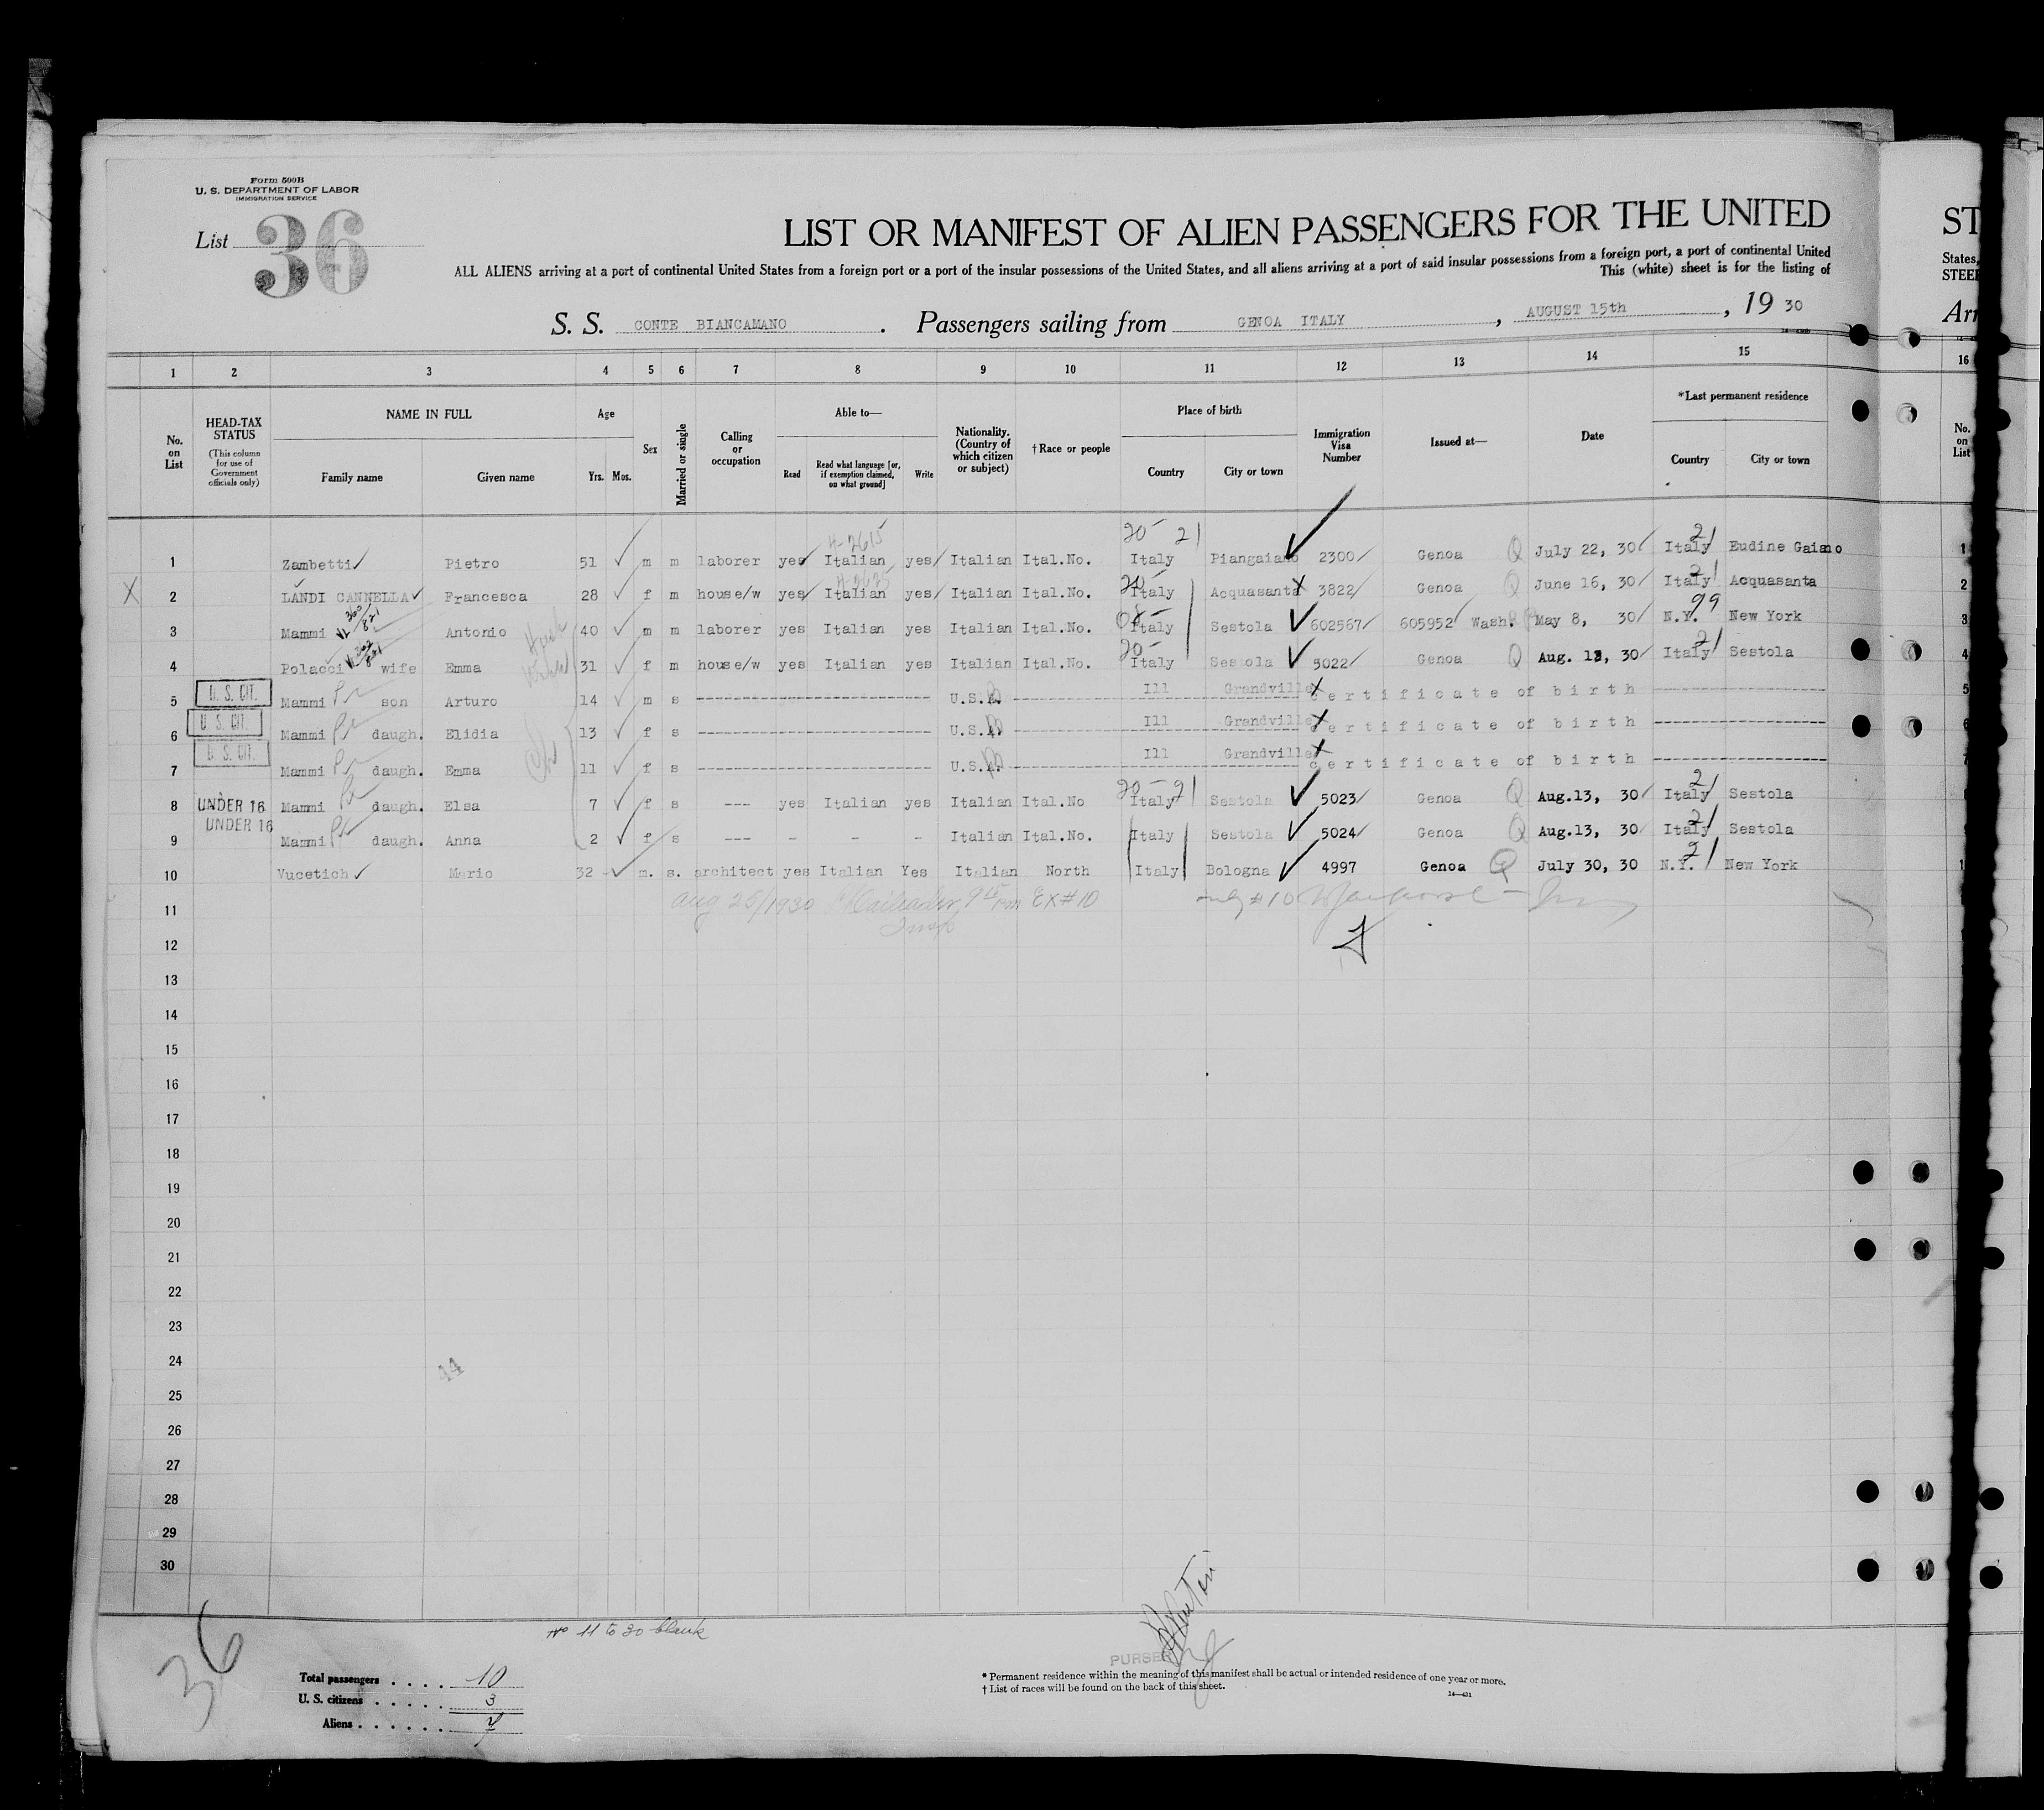 Form 500B
U. S. DEPARTMENT OF LABOR
IMMIGRATION SERVICE
List 36
LIST OR MANIFEST OF ALIEN PASSENGERS FOR THE UNITED
ST
ALL ALIENS arriving at a port of continental United States from a foreign port or a port of the insular possessions of the United States, and all aliens arriving at a port of said insular possessions from a foreign port, a port of continental United
States,
This (white) sheet is for the listing of
STEE
S. S. CONTE BIANCAMANO . Passengers sailing from GENOA ITALY , AUGUST 15th , 19 30
Arr
1 2 3 4 5 6 7 8 9 10 11 12 13 14 15 16
No. on List
HEAD-TAX STATUS (This column for use of Government officials only)
NAME IN FULL Family name Given name
Age Yrs. Mos.
Sex
Married or single
Calling or occupation
Able to— Read Read what language [or, if exemption claimed, on what ground] Write
Nationality. (Country of which citizen or subject)
† Race or people
Place of birth Country City or town
Immigration Visa Number
Issued at—
Date
*Last permanent residence Country City or town
No. on List
20- 21
4-2615
1 Zambetti Pietro 51 m m laborer yes Italian yes Italian Ital.No. Italy Piangaiano 2300 Genoa Q July 22, 30 Italy 21 Eudine Gaiano 1
2 LANDI CANNELLA Francesca 28 f m house/w yes Italian yes Italian Ital.No. Italy Acquasanta 3822 Genoa Q June 16, 30 Italy 21 Acquasanta 2
3 Mammi Antonio 40 m m laborer yes Italian yes Italian Ital.No. Italy Sestola 602567 605952 Wash. May 8, 30 N.Y. 99 New York 3
4 Polacci wife Emma 31 f m house/w yes Italian yes Italian Ital.No. 20- Italy Sestola 5022 Genoa Q Aug. 13, 30 Italy 21 Sestola 4
5 U. S. CIT. Mammi son Arturo 14 m s U.S.A. Ill Grandville certificate of birth 5
6 U. S. CIT. Mammi daugh. Elidia 13 f s U.S.A. Ill Grandville certificate of birth 6
7 U. S. CIT. Mammi daugh. Emma 11 f s U.S.A. Ill Grandville certificate of birth 7
8 UNDER 16 Mammi daugh. Elsa 7 f s --- yes Italian yes Italian Ital.No 20-21 Italy Sestola 5023 Genoa Q Aug.13, 30 Italy 21 Sestola
9 UNDER 16 Mammi daugh. Anna 2 f s --- - - - Italian Ital.No. Italy Sestola 5024 Genoa Q Aug.13, 30 Italy 21 Sestola
10 Vucetich Mario 32 m. s. architect yes Italian Yes Italian North Italy Bologna 4997 Genoa Q July 30, 30 N.Y. 21 New York
11 Aug 25/1930 EX#10 only #10
12
13
14
15
16
17
18
19
20
21
22
23
24
25
26
27
28
29
30
44
No 11 to 30 blank
36
Total passengers . . . . 10
U. S. citizens . . . . . 3
Aliens . . . . . . 7
PURSER
* Permanent residence within the meaning of this manifest shall be actual or intended residence of one year or more.
† List of races will be found on the back of this sheet.
14—431